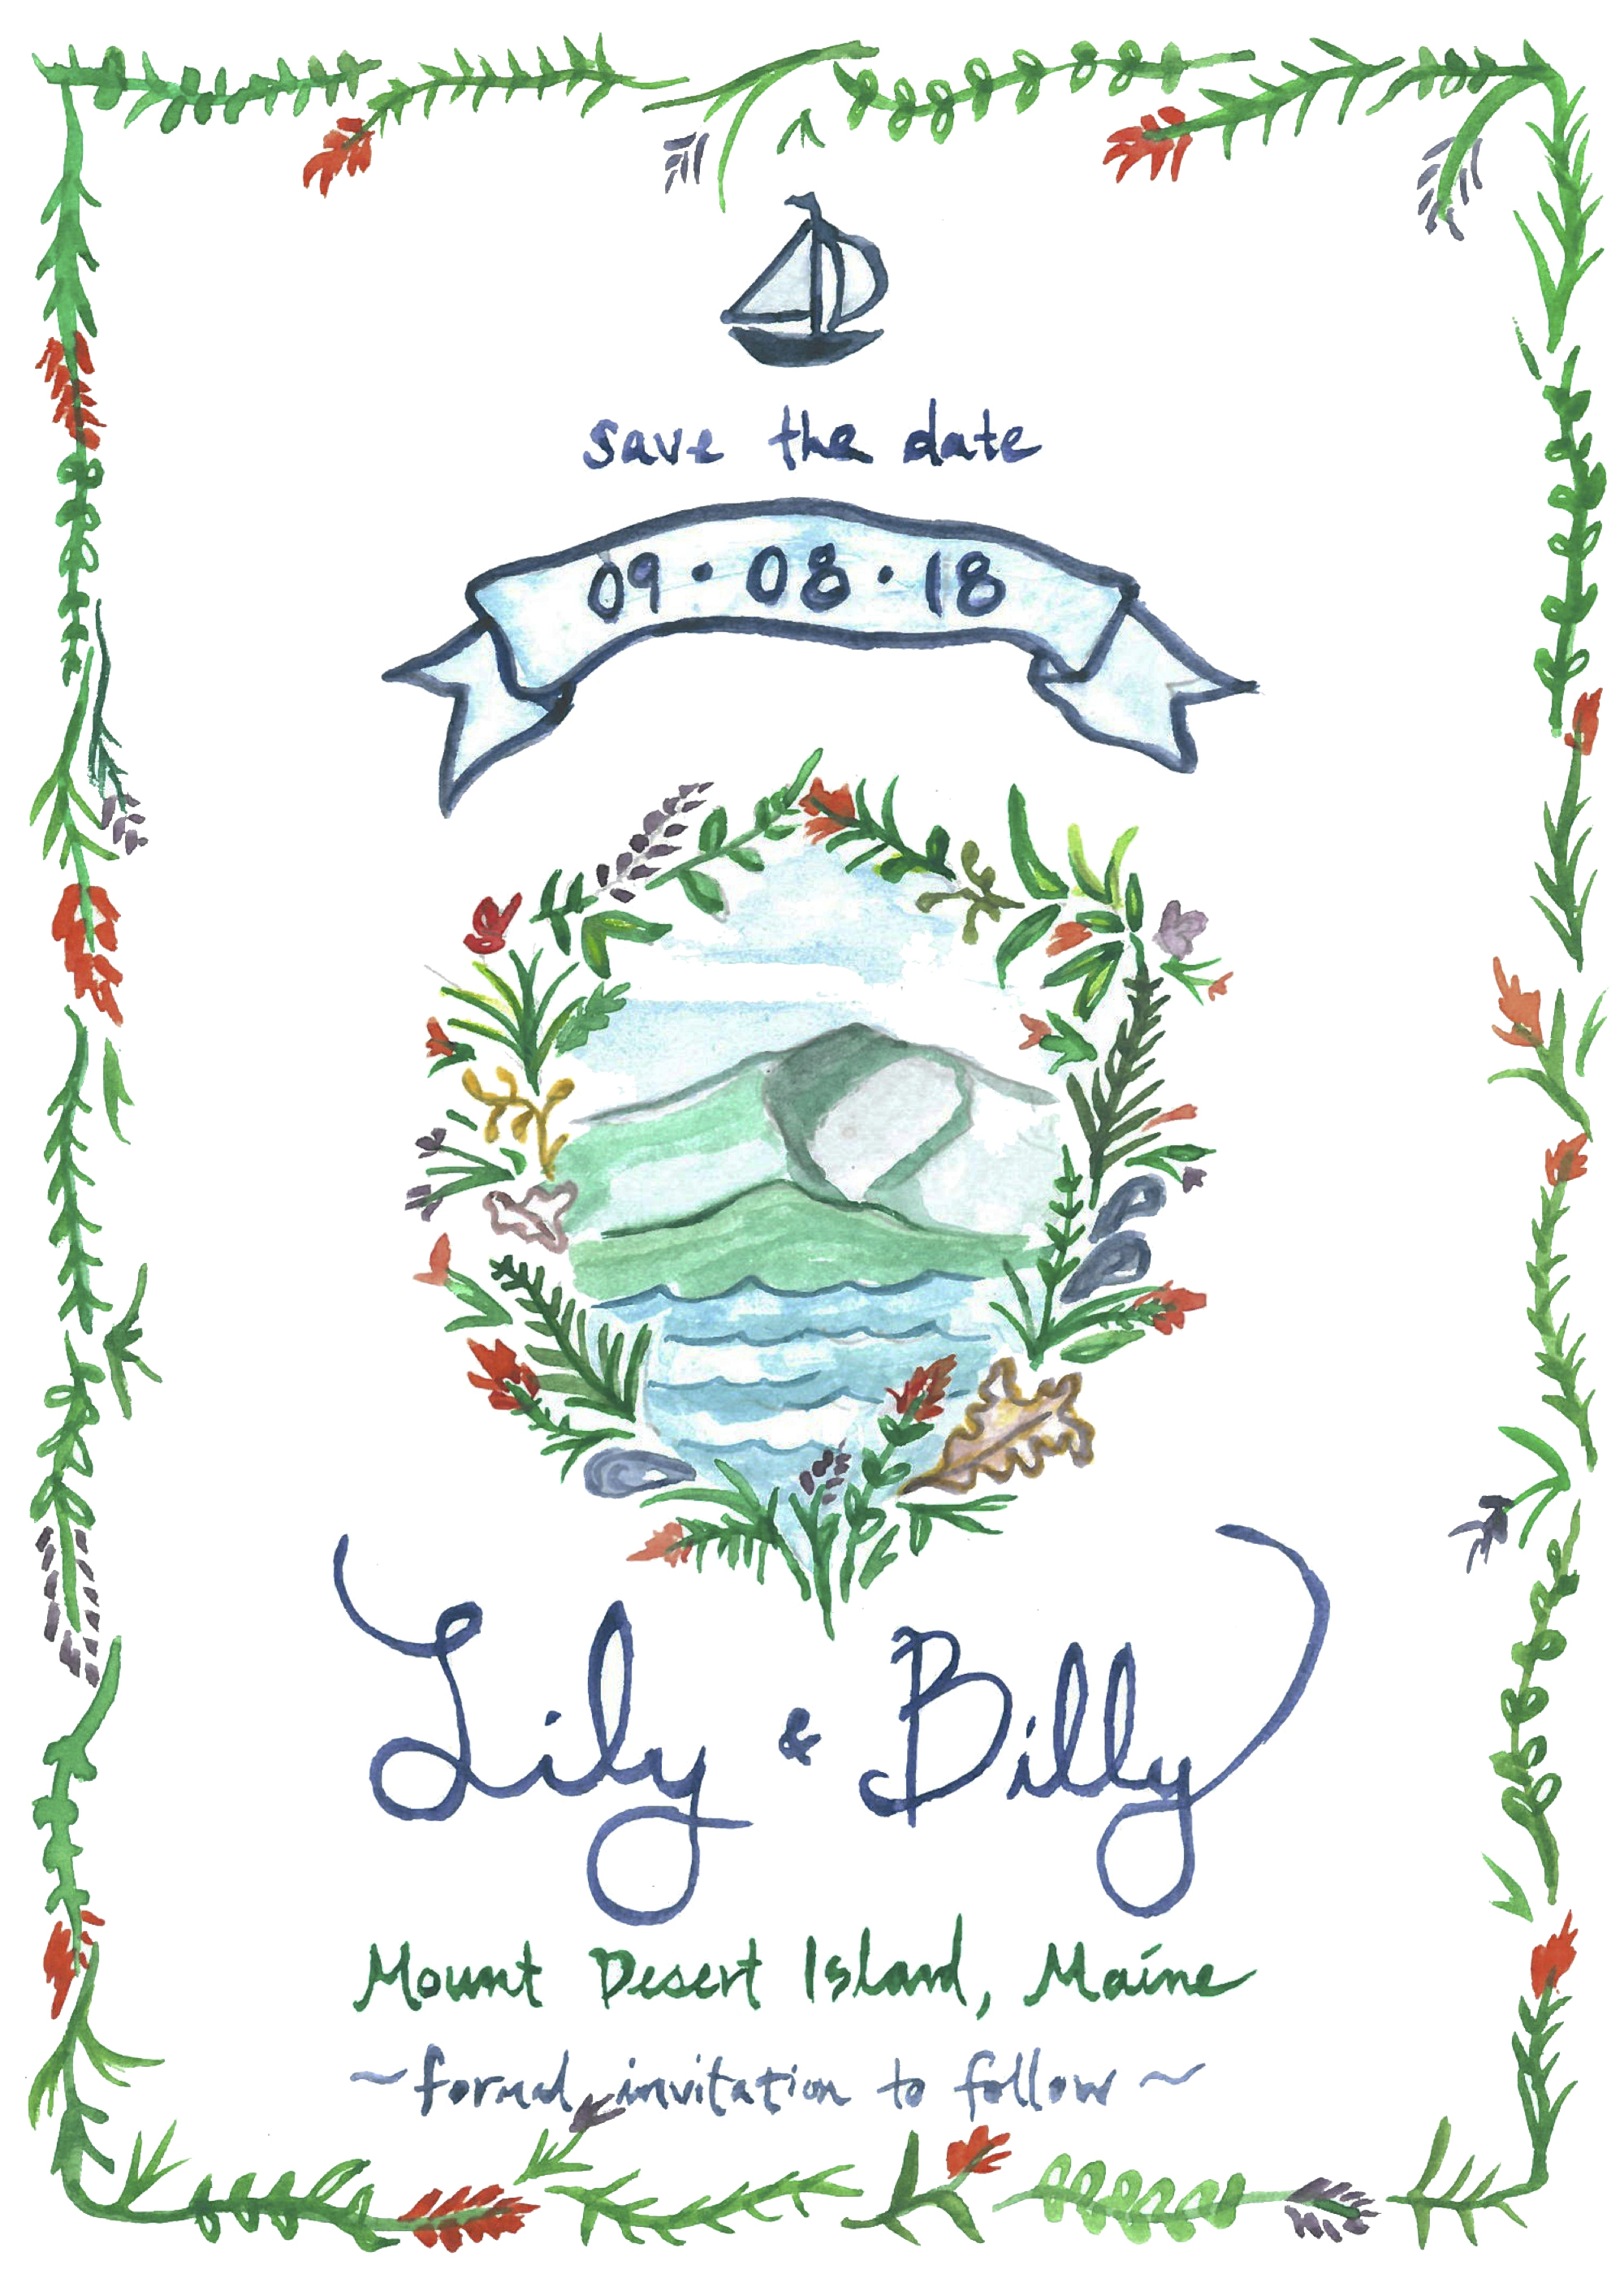 save the date
09 • 08 • 18
Lily & Billy
Mount Desert Island, Maine
~formal invitation to follow~